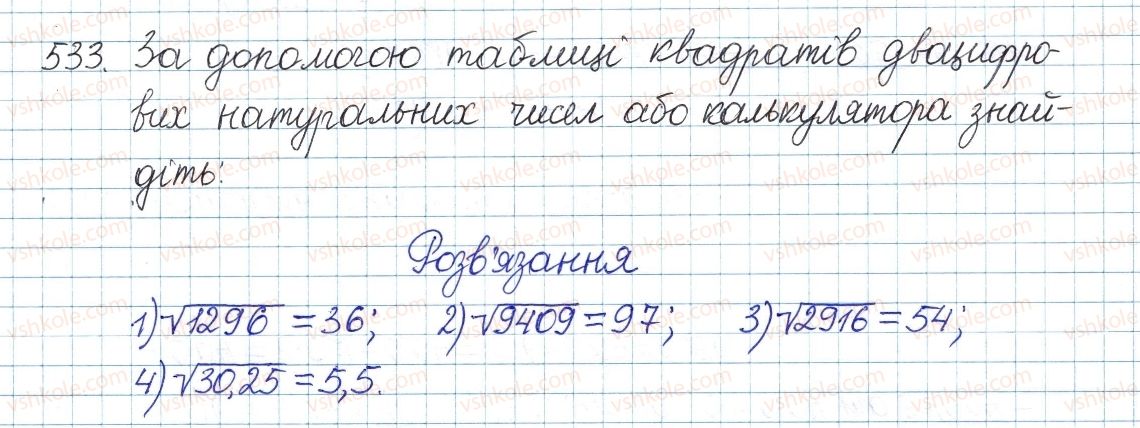 533. За допомогою таблиці квадратів двацифро-
вих натуральних чисел або калькулятора знай-
діть:
Розв'язання
1) √1296 = 36; 2) √9409 = 97; 3) √2916 = 54;
4) √30,25 = 5,5.